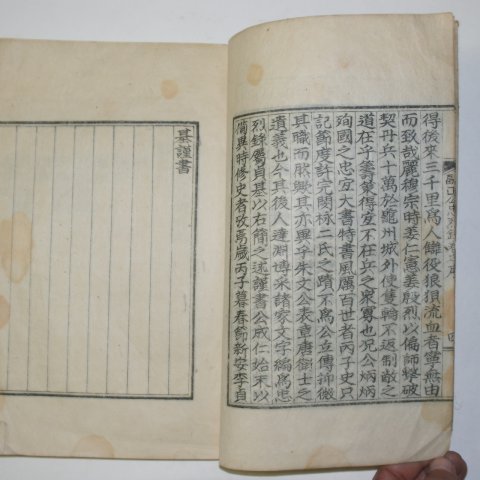 得後來三千里爲人鏵役狼狽流血者寔無由
而致哉麗穆宗時姜仁憲姜殷烈以偏師擊破
契丹兵十萬於龜州城外使隻輪不返制敵之
道在乎籌策得宜不在兵之衆寡也况公炳炳
殉國之忠宜大書特書風厲百世者丙子史只
記節度許完閔栐二氏之蹟不爲公立傳抑微
其職而然歟其亦異乎朱文公表章唐衛士之
遺義也今其後人達淵博采諸家文字編爲忠
烈錄屬貞基以右簡之述謹書公成仁始末以
備異時修史者攷焉歲丙子暮春節新安李貞
基謹書